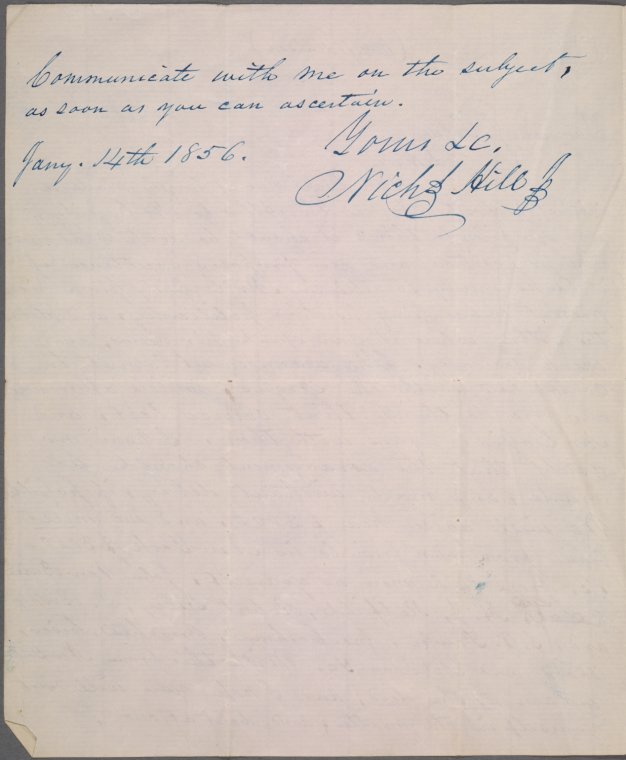 Communicate with me on the subject,
as soon as you can ascertain.
Yours &c.
Jany. 14th 1856.
Nichs Hill Jr